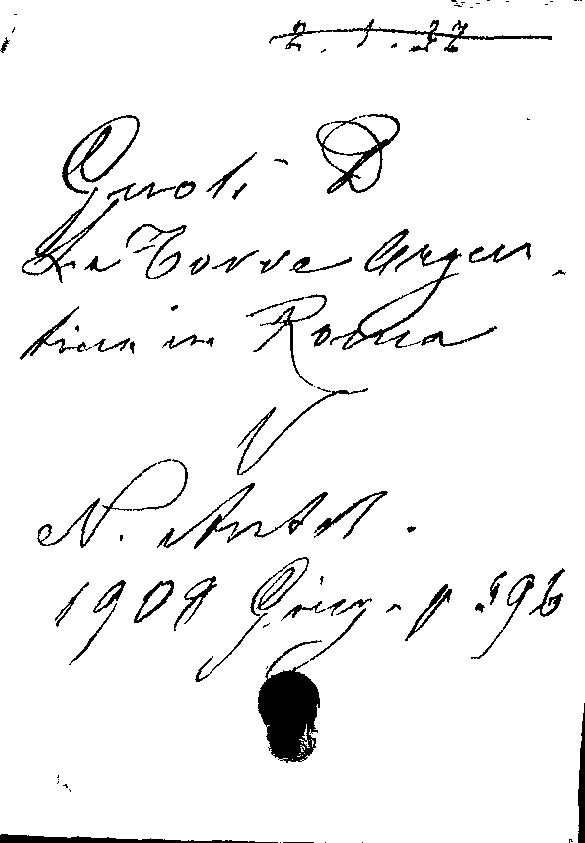 2.1.32
Gnoli D
La Torre Argen-
tina in Roma
V
N. Antol.
1908 Giug. p 396